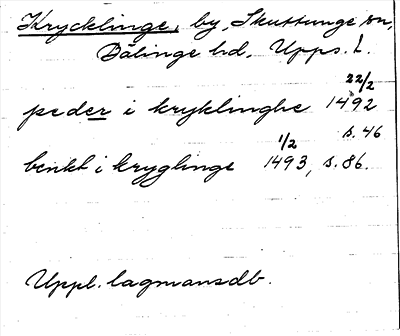 Krycklinge, by, Skuttunge sn,
Bälinge hd, Upps. l.
peder i kryklinghe 1492 22/2
s. 46
benkt i kryglinge 1493 1/2, s. 86.
Uppl. lagmansdb.